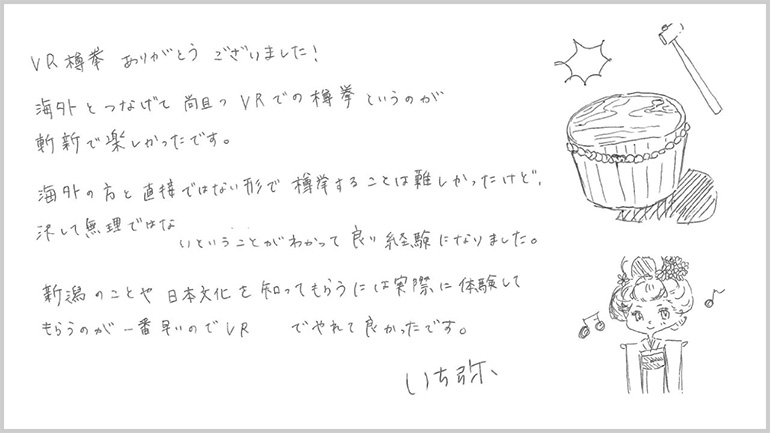 VR樽拳 ありがとう ございました！
海外とつなげて 尚且つ VRでの 樽拳 というのが
斬新で楽しかったです。
海外の方と直接ではない形で 樽拳することは難しかったけど、
決して無理ではな
いということがわかって 良い経験になりました。
新潟のことや 日本文化を知ってもらうには実際に体験して
もらうのが 一番早いのでVR でやれて良かったです。
いち弥